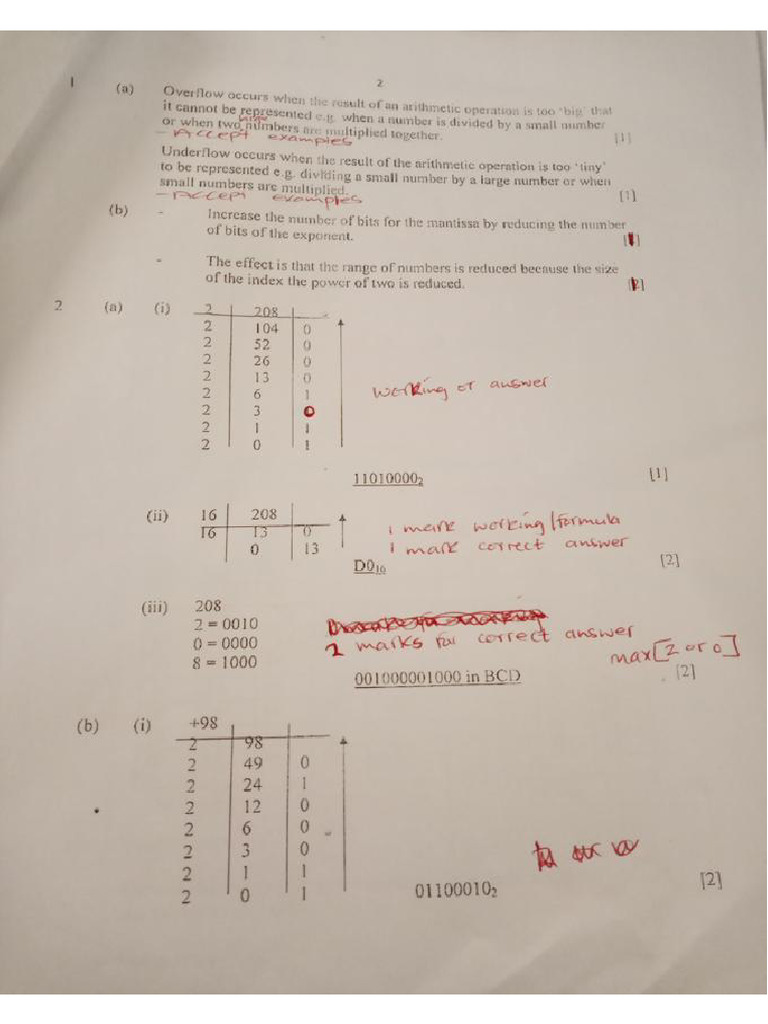 2
1 (a) Overflow occurs when the result of an arithmetic operation is too 'big' that
it cannot be represented e.g. when a number is divided by a small number
or when two large numbers are multiplied together. [1]
- Accept examples
Underflow occurs when the result of the arithmetic operation is too 'tiny'
to be represented e.g. dividing a small number by a large number or when
small numbers are multiplied. [1]
- Accept examples
(b) - Increase the number of bits for the mantissa by reducing the number
of bits of the exponent. [1]
- The effect is that the range of numbers is reduced because the size
of the index the power of two is reduced. [2]
2 (a) (i) 2 208
2 104 0
2 52 0
2 26 0
2 13 0
2 6 1 working or answer
2 3 0
2 1 1
2 0 1
11010000₂ [1]
(ii) 16 208 1 mark working/formula
16 13 0
0 13 1 mark correct answer
D0₁₀ [2]
(iii) 208
2 = 0010
0 = 0000 2 marks for correct answer
8 = 1000 max[2 or 0]
001000001000 in BCD [2]
(b) (i) +98
2 98
2 49 0
2 24 1
2 12 0
2 6 0
2 3 0
2 1 1
2 0 1
01100010₂ [2]